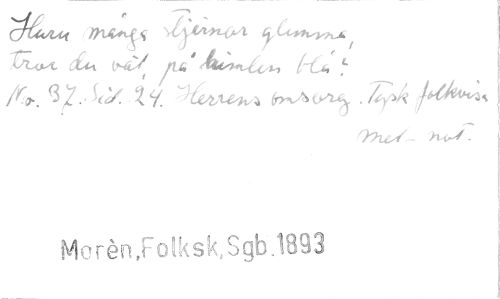 Huru många stjernor glimma,
tror du väl, på himlen blå?
No. 37. Sid. 24. Herrens omsorg. Tysk folkvisa
met not.
Morèn,Folksk,Sgb.1893